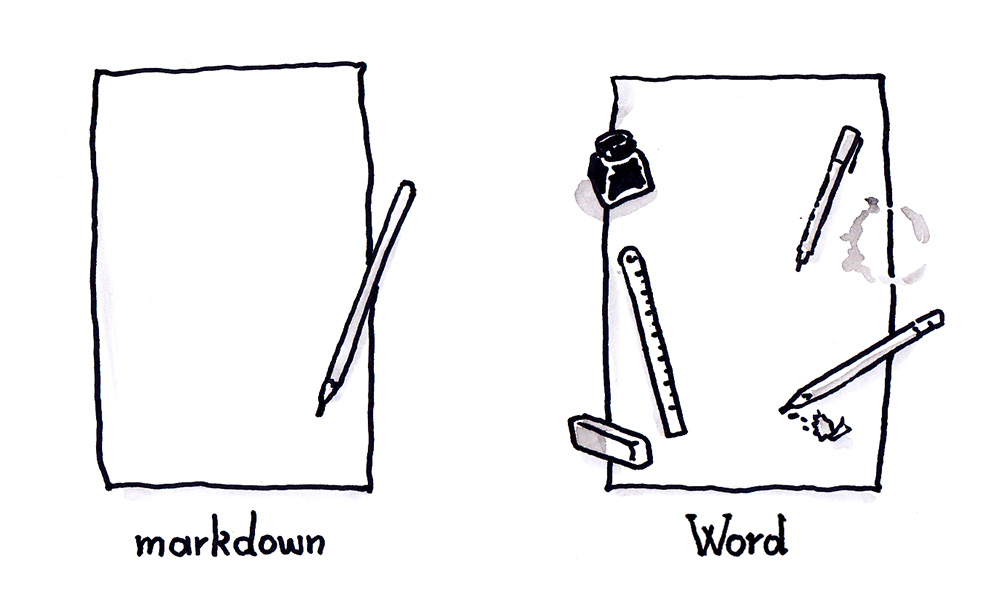 markdown
Word